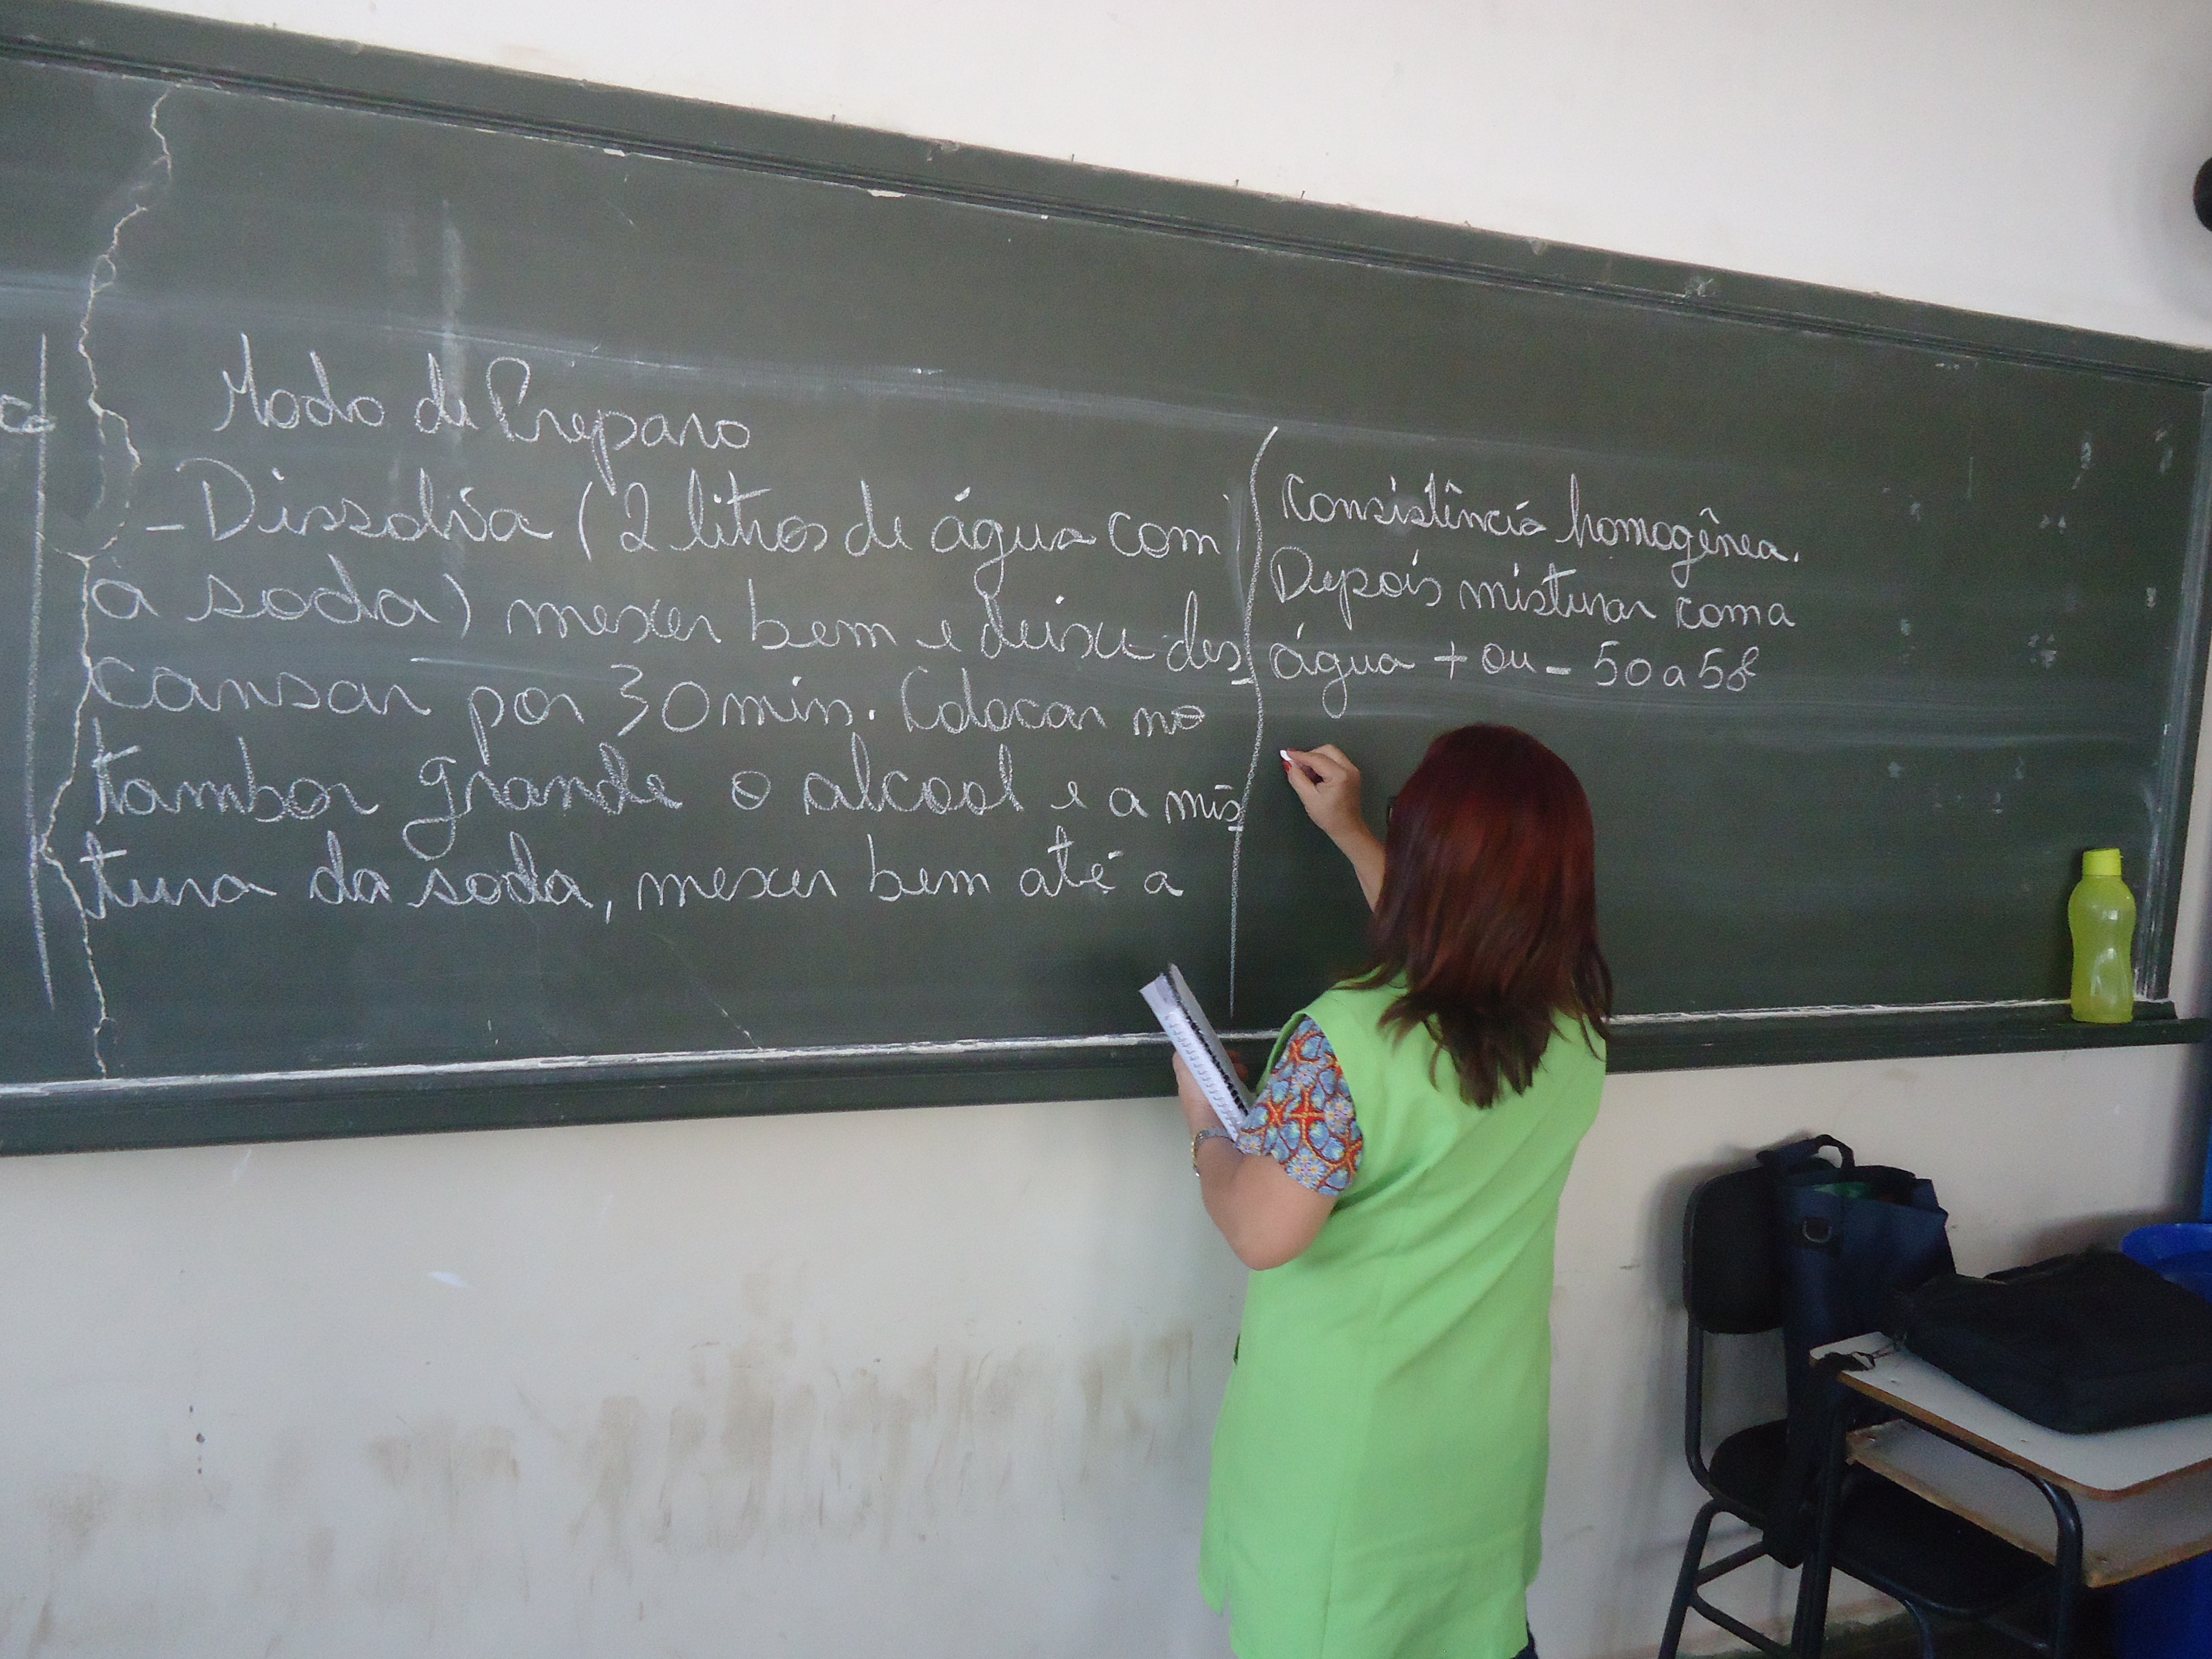 Modo de Preparo
- Dissolva (2 litros de água com
a soda) mexer bem e deixe des
cansar por 30 min. Colocar no
tambor grande o alcool e a mis
tura da soda, mexer bem até a
consistência homogênea.
Depois misturar com a
água + ou - 50 a 58